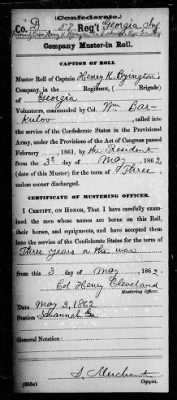 (Confederate.)
Co. D 57 Reg't Georgia Inf
Company Muster-in Roll.
CAPTION OF ROLL.
Muster Roll of Captain Henry K. Byington's
Company, in the Regiment, ( Brigade)
of Georgia
Volunteers, commanded by Col. Wm Bar-
kuloo, called into
the service of the Confederate States in the Provisional
Army, under the Provisions of the Act of Congress passed
February , 1861, by the President
from the 3d day of May, 1862
(date of this Muster) for the term of Three
unless sooner discharged.
CERTIFICATE OF MUSTERING OFFICER.
I CERTIFY, ON HONOR, That I have carefully examined
the men whose names are borne on this Roll,
their horses, and equipments, and have accepted them
into the service of the Confederate States for the term of
Three years or the war
from this 3 day of May, 1862
Col Henry Cleaveland
Mustering Officer.
Date May 3, 1862
Station Savannah Ga
General Notation:
S. Merchant
Copyist.